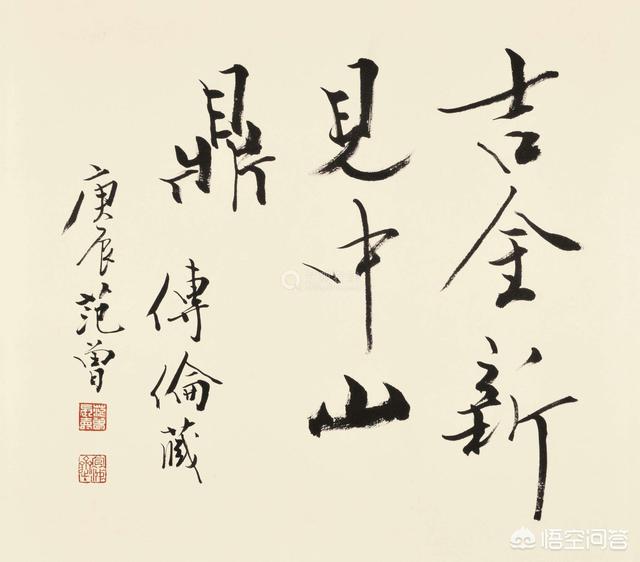 吉金新
見中山
鼎
傳倫藏
庚辰范曾
悟空问答